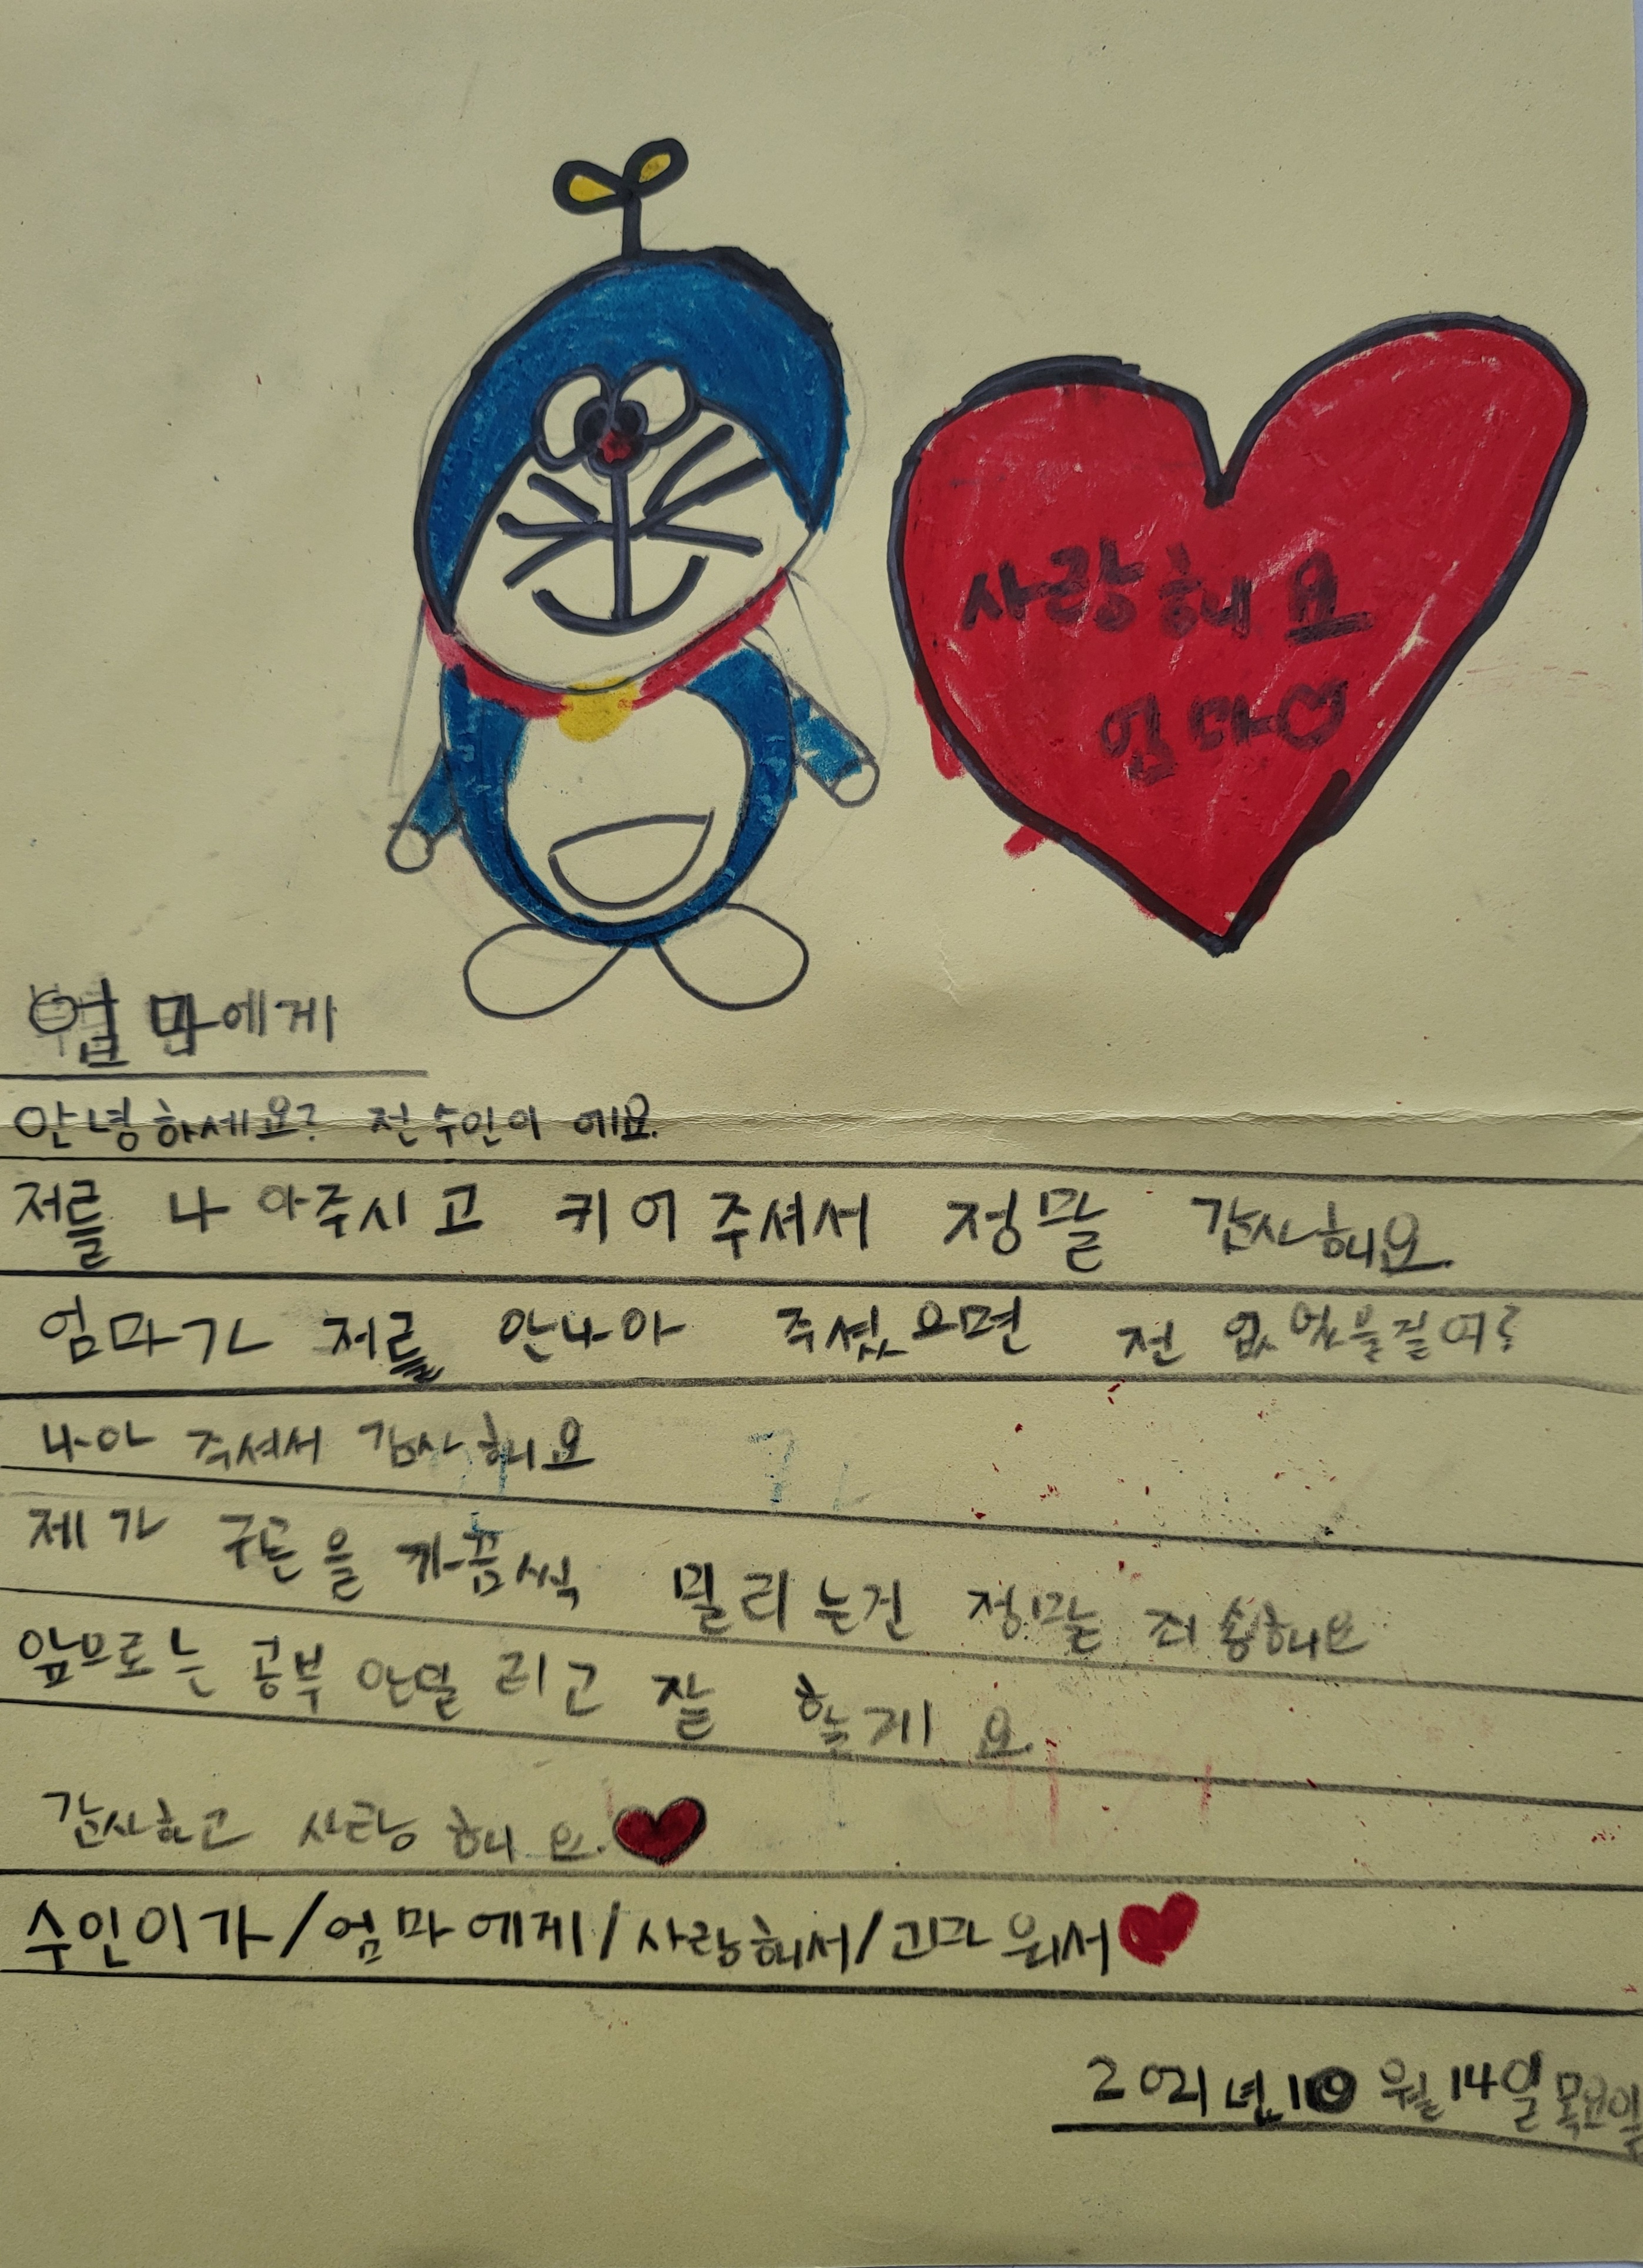 사랑해요
엄마♡
엄마에게
안녕하세요? 전 수인이 에요.
저를 나아주시고 키어주셔서 정말 감사해요.
엄마가 저를 안나아 주셨으면 전 없었을걸여?
나아 주셔서 감사해요
제가 구몬을 가끔씩 밀리는건 정말 죄송해요
앞으로는 공부 안밀리고 잘 할게요.
감사하고 사랑해요.♥
수인이가/엄마에게/사랑해서/고마워서♥
2021년 10월 14일 목요일